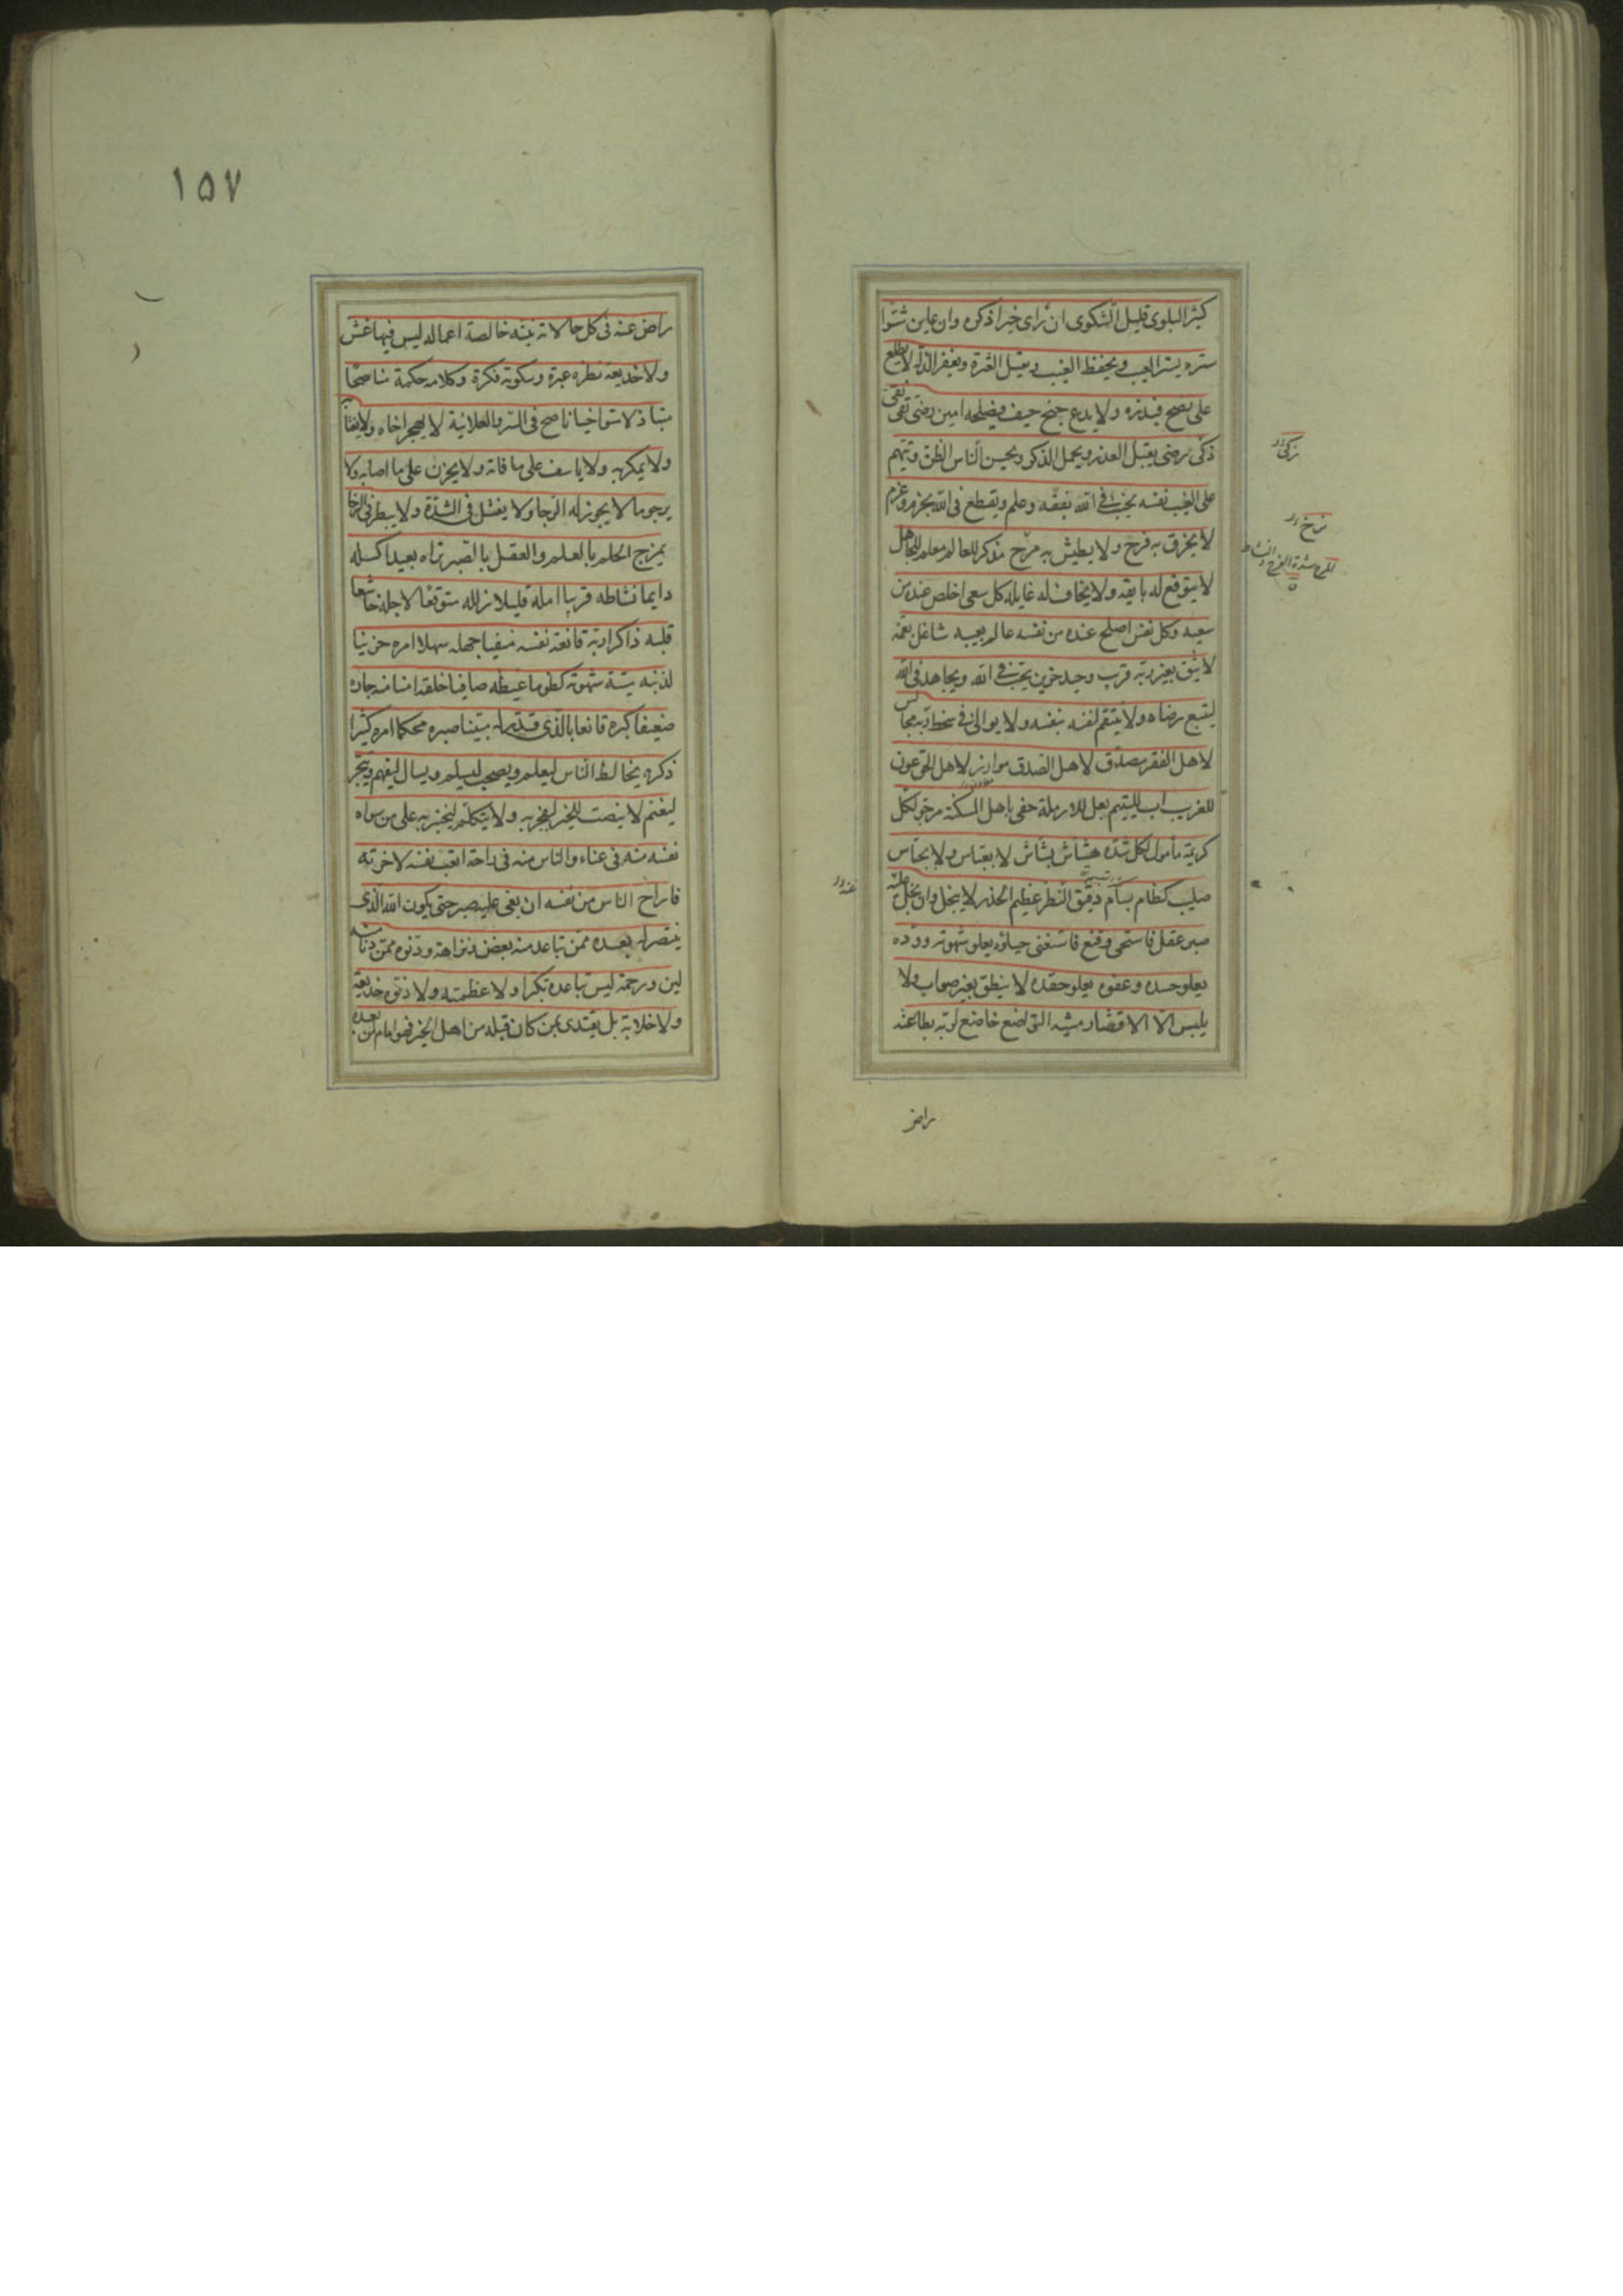 كثير البلوى قليل الشكوى ان راى خيرا ذكره وان عاين شرا
ستره يستر العيب ويحفظ الغيب ويقيل العثرة ويغفر الزلة لا يطلع
على نصح فيذره ولا يدع جنح حيف فيصلحه امين رضى تقى نقى
ذكى رضى يقبل العذر ويجمل الذكر ويحسن بالناس الظن ويتهم
على الغيب نفسه يحب فى الله بفقه وعلم ويقطع فى الله بحزم وعزم
لا يخرق به فرح ولا يطيش به مرح مذكر للعالم معلم للجاهل
لا يتوقع له بايقة ولا يخاف له غايلة كل سعى اخلص عنده من
سعيه وكل نفس اصلح عنده من نفسه عالم بعيبه شاغل بغمه
لا يثق بغير ربه قريب وحيد حزين يحب فى الله ويجاهد فى الله
ليتبع رضاه ولا ينتقم لنفسه بنفسه ولا يوالى فى سخط ربه مجالس
لاهل الفقر مصادق لاهل الصدق موازر لاهل الحق عون
للغريب اب لليتيم بعل للارملة حفى باهل المسكنة مرجو لكل
كريهة مأمول لكل شدة هشاش بشاش لا بعباس ولا بجساس
صليب كظام بسام دقيق النظر عظيم الحذر لا يبخل وان بخل عليه
صبر عقل فاستحى وقنع فاستغنى حياؤه يعلو شهوته ووده
يعلو حسده وعفوه يعلو حقده لا ينطق بغير صواب ولا
يلبس الا الاقتصاد مشيه التواضع خاضع لربه بطاعته
زكى
مرح
المرح شدة الفرح والنشاط
عنده
راض
١٥٧
راض عنه فى كل حالاته نيته خالصة اعماله ليس فيها غش
ولا خديعة نظره عبرة وسكوته فكرة وكلامه حكمة مناصحا
متباذلا متواخيا ناصح فى السر والعلانية لا يهجر اخاه ولا يغتابه
ولا يمكر به ولا ياسف على ما فاته ولا يحزن على ما اصابه ولا
يرجو ما لا يجوز له الرجا ولا يفشل فى الشدة ولا يبطر فى الرخا
يمزج الحلم بالعلم والعقل بالصبر تراه بعيدا كسله
دايما نشاطه قريبا امله قليلا زلله متوقعا لاجله خاشعا
قلبه ذاكرا ربه قانعة نفسه منفيا جهله سهلا امره حزينا
لذنبه ميتة شهوته كظوما غيظه صافيا خلقه امنا منه جاره
ضعيفا كبره قانعا بالذى قدر له متينا صبره محكما امره كثيرا
ذكره يخالط الناس ليعلم ويصمت ليسلم ويسال ليفهم ويتجر
ليغنم لا ينصت للخير ليفخر به ولا يتكلم ليتجبر به على من سواه
نفسه منه فى عناء والناس منه فى راحة اتعب نفسه لاخرته
فاراح الناس من نفسه ان بغى عليه صبر حتى يكون الله الذى
ينتصر له بعده ممن تباعد منه بغض ونزاهة ودنوه ممن دنا منه
لين ورحمة ليس تباعده تكبرا ولا عظمة ولا دنوه خديعة
ولا خلابة بل يقتدى بمن كان قبله من اهل الخير فهو امام لمن بعده